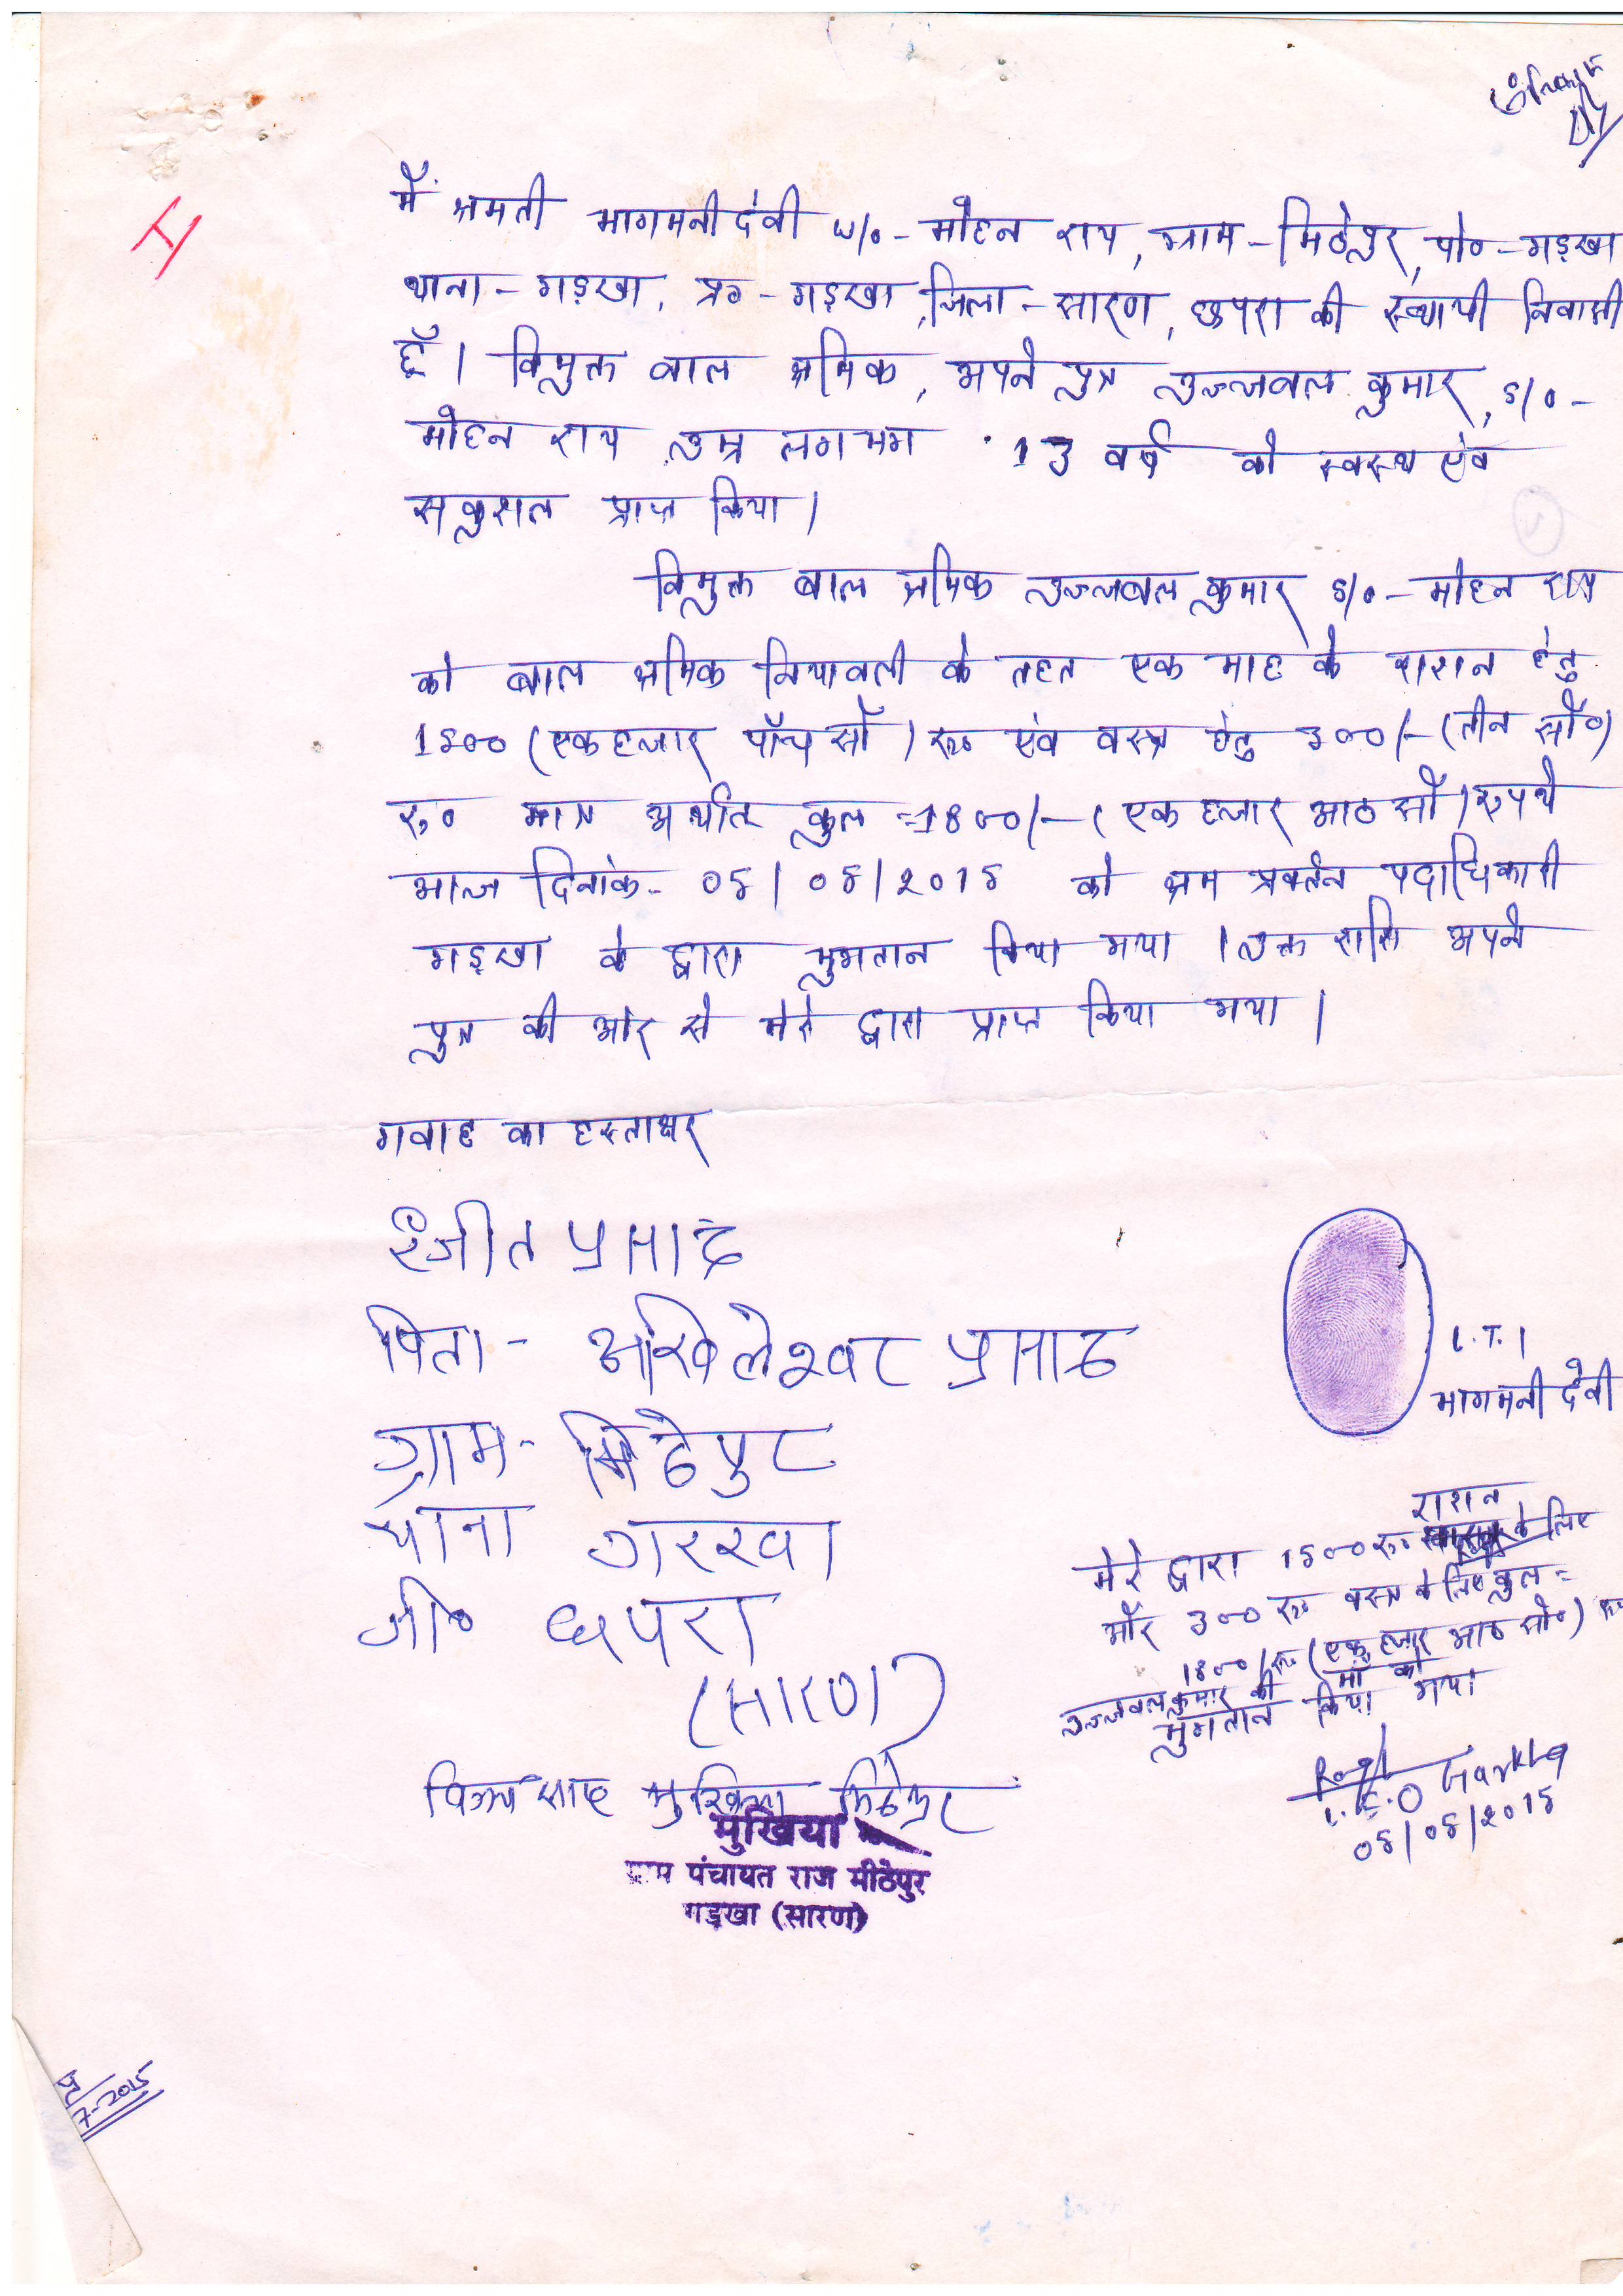 मैं श्रमती भागमनी देवी w/o - मोहन राय, ग्राम - मिठेपुर, पो० - गड़खा
थाना - गड़खा, प्र० - गड़खा, जिला - सारण, छपरा की स्थायी निवासी
हूँ। विमुक्त बाल श्रमिक, अपने पुत्र उज्जवल कुमार, s/o -
मोहन राय उम्र लगभग 13 वर्ष को स्वस्थ एंव
सकुसल प्राप्त किया।
विमुक्त बाल श्रमिक उज्जवल कुमार s/o - मोहन राय
को बाल श्रमिक नियावली के तहत एक माह के राशन हेतु
1500 (एक हजार पाँच सौ) रू० एंव वस्त्र हेतु 300/- (तीन सौ०)
रु० मात्र अर्थात कुल = 1800/- (एक हजार आठ सौ) रुपये
आज दिनांक - 05/05/2015 को श्रम प्रवर्तन पदाधिकारी
गड़खा के द्वारा भुगतान किया गया। उक्त राशि अपने
पुत्र की ओर से मेरे द्वारा प्राप्त किया गया।
गवाह का हस्ताक्षर
रंजीत प्रसाद
पिता - अखिलेश्वर प्रसाद
L.T.I
भागमनी देवी
ग्राम - मिठेपुर
थाना गरखा
जी० छपरा
(सारण)
राशन
मेरे द्वारा 1500 रू० के लिए
और 300 रू० वस्त्र के लिए कुल =
1800/रू० (एक हजार आठ सौ०) रू०
उज्जवल कुमार की माँ को
भुगतान किया गया
L.E.O Garkha
05/05/2015
विजय साह मुखिया मिठेपुर
मुखिया
ग्राम पंचायत राज मीठेपुर
गड़खा (सारण)
7-2015